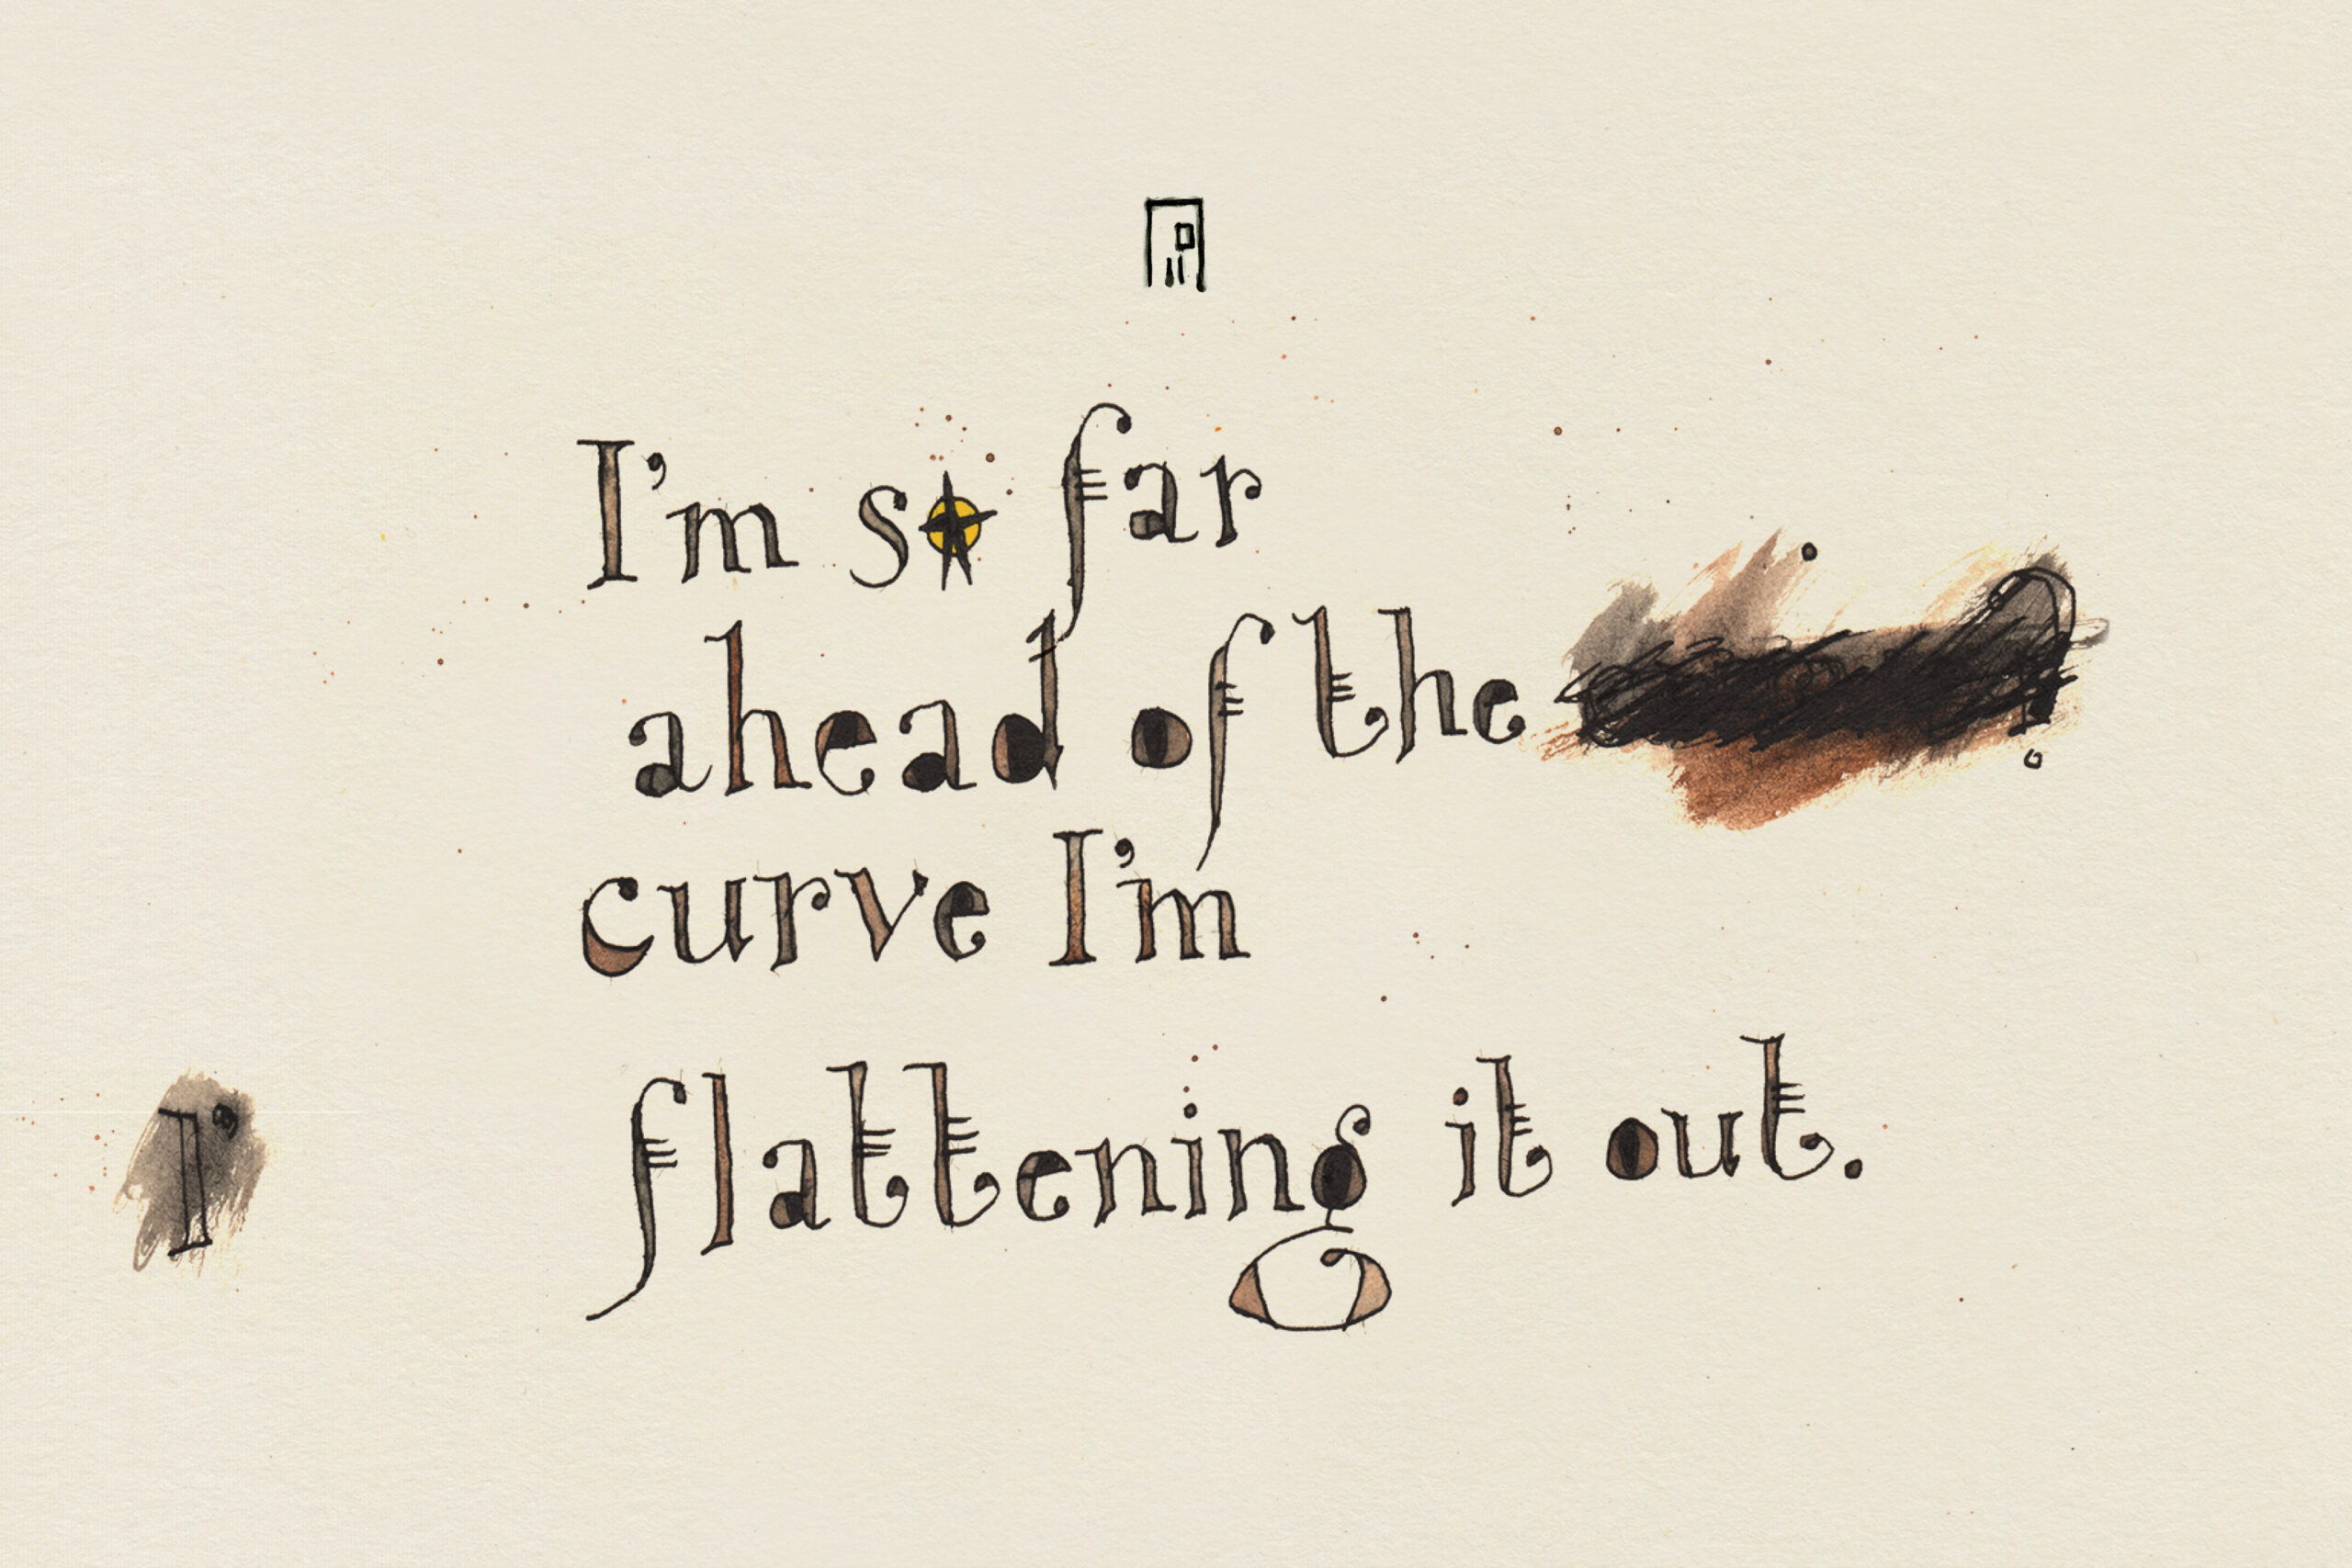 I'm so far
ahead of the
curve I'm
flattening it out.
I'